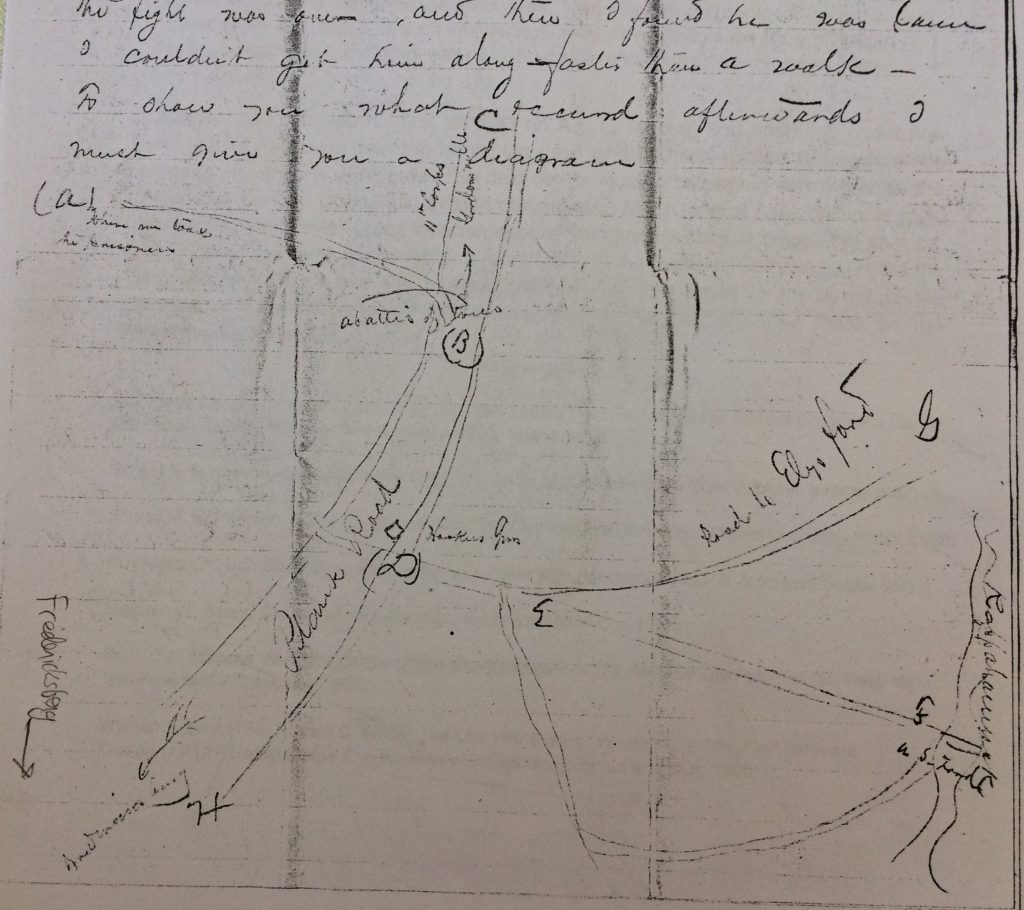 the fight was over, and then I found he was lame
I couldn't get him along faster than a walk –
To show you what occurred afterwards I
must give you a diagram
C
(a)
where we took
the prisoners
11th Corps
abattis of trees
B
G
Road to Elys ford
Plank Road
D
Hookers
E
Rappahannock
Fredericksburg
F
U. S. Ford
H